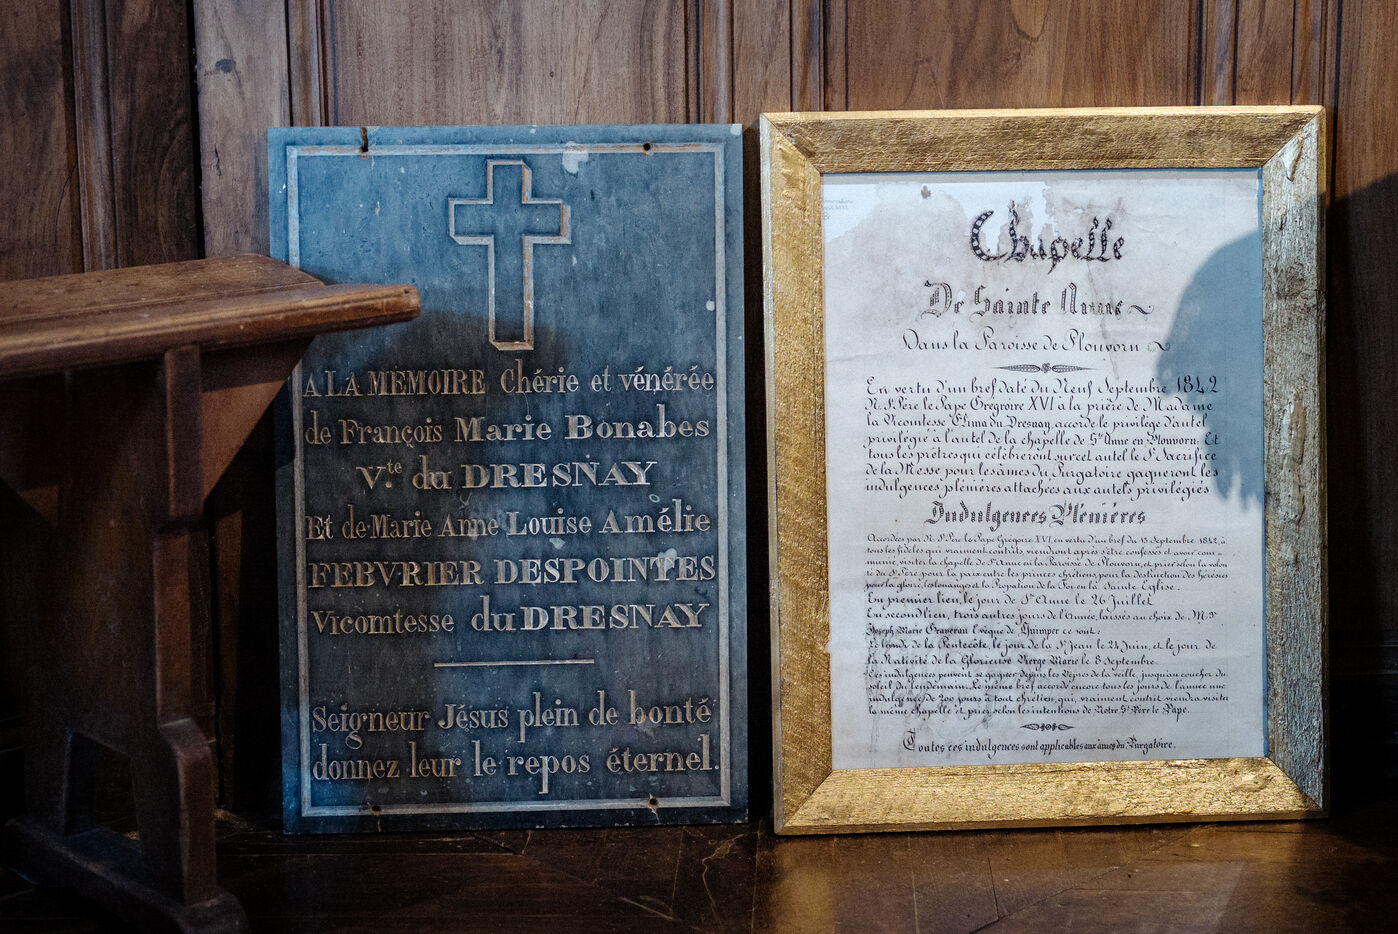 A LA MÉMOIRE Chérie et vénérée
de François Marie Bonabes
V.te du DRESNAY
Et de Marie Anne Louise Amélie
FEBVRIER DESPOINTES
Vicomtesse du DRESNAY
Seigneur Jésus plein de bonté
donnez leur le repos éternel.
Chapelle
De Sainte Anne
Dans la Paroisse de Plouvorn
En vertu d'un bref daté du Neuf Septembre 1842
N. S. Père le Pape Grégoire XVI à la prière de Madame
la Vicomtesse du Dresnay, accorde le privilège d'autel
privilégié à l'autel de la chapelle de Ste Anne en Plouvorn: Et
tous les prêtres qui célèbreront sur cet autel le St Sacrifice
de la Messe pour les âmes du Purgatoire gagneront les
indulgences plénières attachées aux autels privilégiés
Indulgences Plénières
Accordées par N. St Père le Pape Grégoire XVI, en vertu d'un bref du 13 Septembre 1842, à
tous les fidèles qui vraiment contrits viendront après s'être confessés et avoir com-
munié, visiter la chapelle de Ste Anne en la Paroisse de Plouvorn, et prier selon la volon
té du St Père pour la paix entre les princes chrétiens, pour la destruction des hérésies
pour la gloire, les louanges et la Propation de la Foi en la Sainte Église.
En premier lieu, le jour de Ste Anne le 26 Juillet
En second lieu, trois autres jours de l'Année, laissés au choix de M.gr
Joseph Marie Graveran Evêque de Quimper ce sont:
Le lundi de la Pentecôte, le jour de la St Jean le 24 Juin, et le jour de
la Nativité de la Glorieuse Vierge Marie le 8 Septembre.
Ces indulgences peuvent se gagner depuis les Vêpres de la veille, jusqu'au coucher du
soleil du lendemain. Le même bref accorde encore tous les jours de l'année une
indulgence de 200 jours à tout chrétien, qui, vraiment contrit viendra visiter
la même chapelle et prier selon les intentions de Notre St Père le Pape.
Toutes ces indulgences sont applicables aux âmes du Purgatoire.